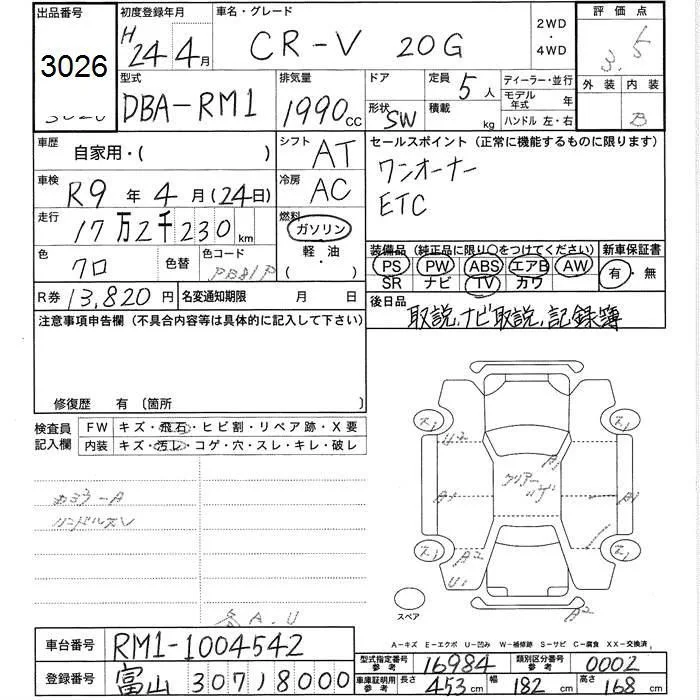 出品番号 初度登録年月 車名・グレード 2WD・4WD 評価点
3026 H24年4月 CR-V 20G 3.5
型式 排気量 ドア 定員 5人 ディーラー・並行 外装 内装
DBA-RM1 1990cc 形状 SW 積載 kg モデル年式 年 B
ハンドル 左・右
車歴 自家用・( ) シフト AT セールスポイント (正常に機能するものに限ります)
車検 R9年4月(24日) 冷房 AC ワンオーナー
ETC
走行 17万2千230km 燃料 ガソリン
軽・油
( )
色 クロ 色替 色コード PB81P
装備品 (純正品に限り○をつけてください) 新車保証書
PS PW ABS エアB AW 有・無
SR ナビ TV カワ
R券 13,820円 名変通知期限 月 日
後日品 取説、ナビ取説、記録簿
注意事項申告欄 (不具合内容等は具体的に記入して下さい)
修復歴 有 (箇所
検査員記入欄 FW キズ・飛石・ヒビ割・リペア跡・X要
内装 キズ・汚レ・コゲ・穴・スレ・キレ・破レ
ハンドルスレ
A.U
クリアーハゲ
A1
U2
A1
A1
A2
U1
A2
スペア
A-キズ E-エクボ U-凹み W-補修跡 S-サビ C-腐食 XX-交換済
車台番号 RM1-1004542
型式指定番号 参考 16984 類別区分番号 参考 0002
登録番号 富山 307 ノ 8000
車庫証明用 参考 長さ 453cm 幅 182cm 高さ 168cm